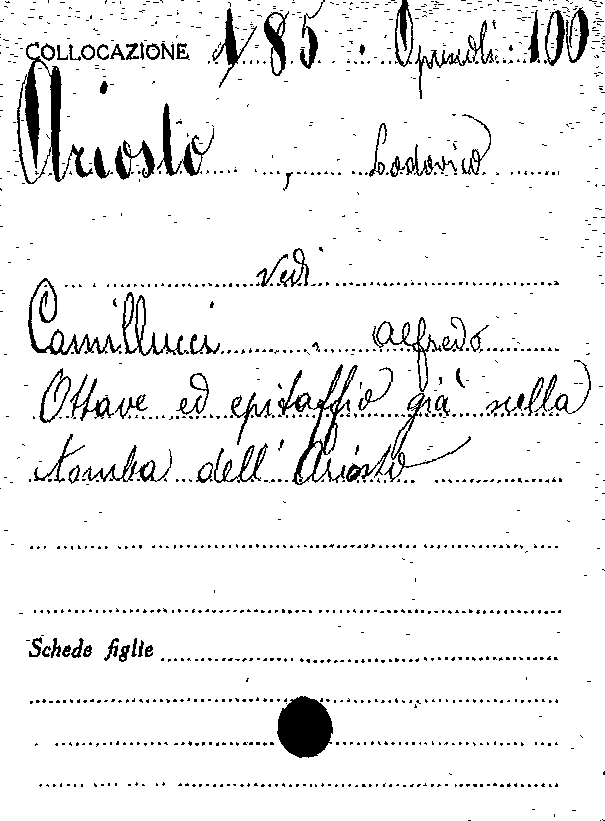 COLLOCAZIONE 1 85 . Opuscoli . 100
Ariosto , Lodovico
vedi
Camillucci , Alfredo
Ottave ed epitaffio già sulla
tomba dell' Ariosto
Schede figlie